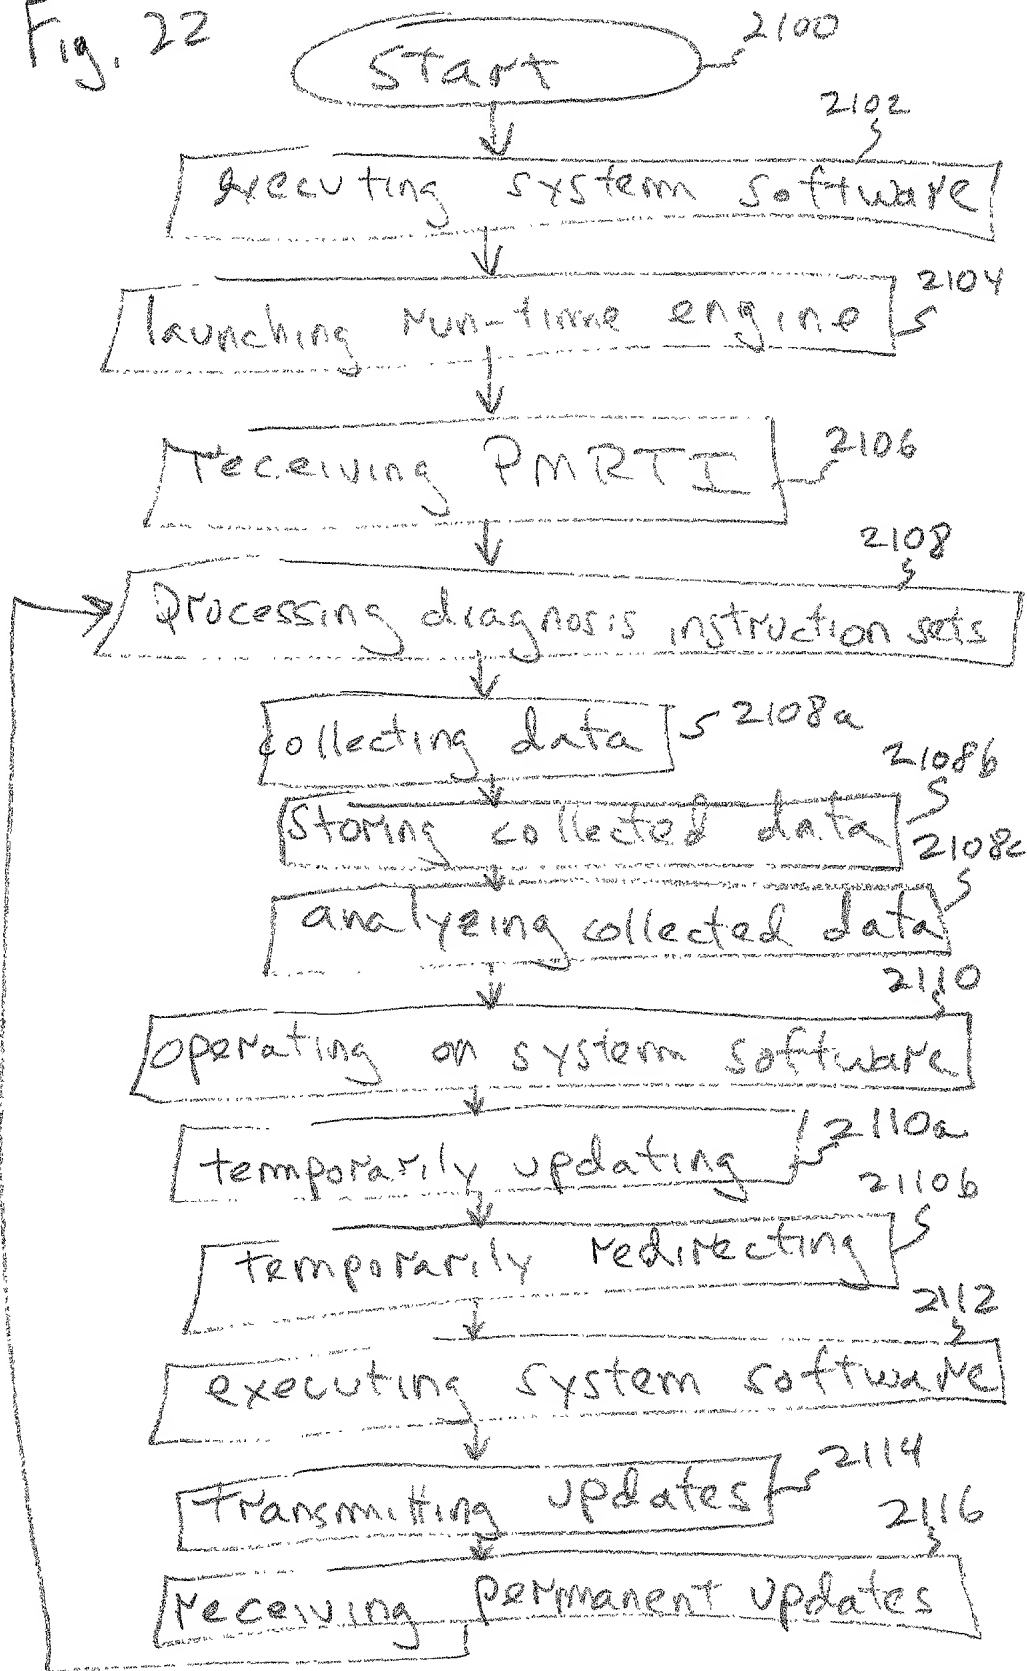 Fig. 22
Start 2100
2102
executing system software
2104
launching run-time engine
receiving PMRTI 2106
2108
Processing diagnosis instruction sets
collecting data 2108a
2108b
Storing collected data
2108c
analyzing collected data
2110
operating on system software
2110a
temporarily updating
2110b
temporarily redirecting
2112
executing system software
2114
Transmitting updates
2116
receiving permanent updates